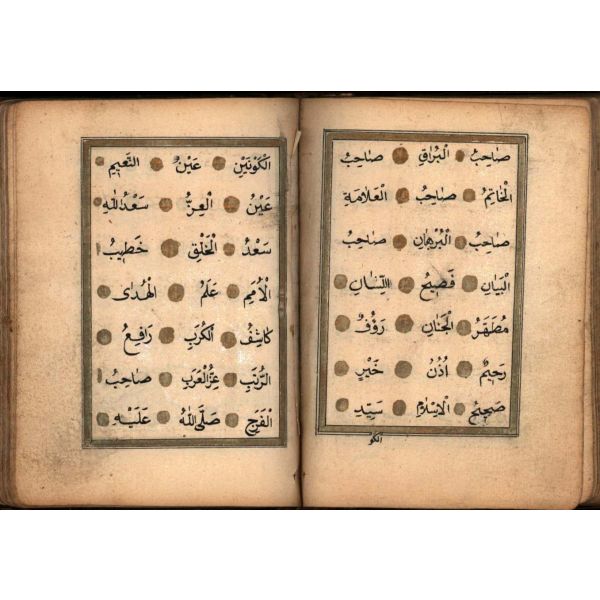 صَاحِبُ الْبُرَاقِ صَاحِبُ
الْخَاتِمُ صَاحِبُ الْعَلَامَةِ
صَاحِبُ الْبُرْهَانِ صَاحِبُ
الْبَيَانِ فَصِيحُ اللِّسَانِ
مُطَهَّرُ الْجَنَانِ رَؤُفٌ
رَحِيمٌ اُذُنُ خَيْرٍ
صَحِيحُ الْاِسْلَامِ سَيِّدِ
الكو
الْكَوْنَيْنِ عَيْنُ النَّعِيمِ
عَيْنُ الْعِزُّ سَعْدُ اللّٰهِ
سَعْدُ الْخَلْقِ خَطِيبُ
الْاُمَمِ عَلَمُ الْهُدٰى
كَاشِفُ الْكُرَبِ رَافِعُ
الرُّتَبِ عِزُّ الْعَرَبِ صَاحِبُ
الْفَرَجِ صَلَّى اللّٰهُ عَلَيْهِ